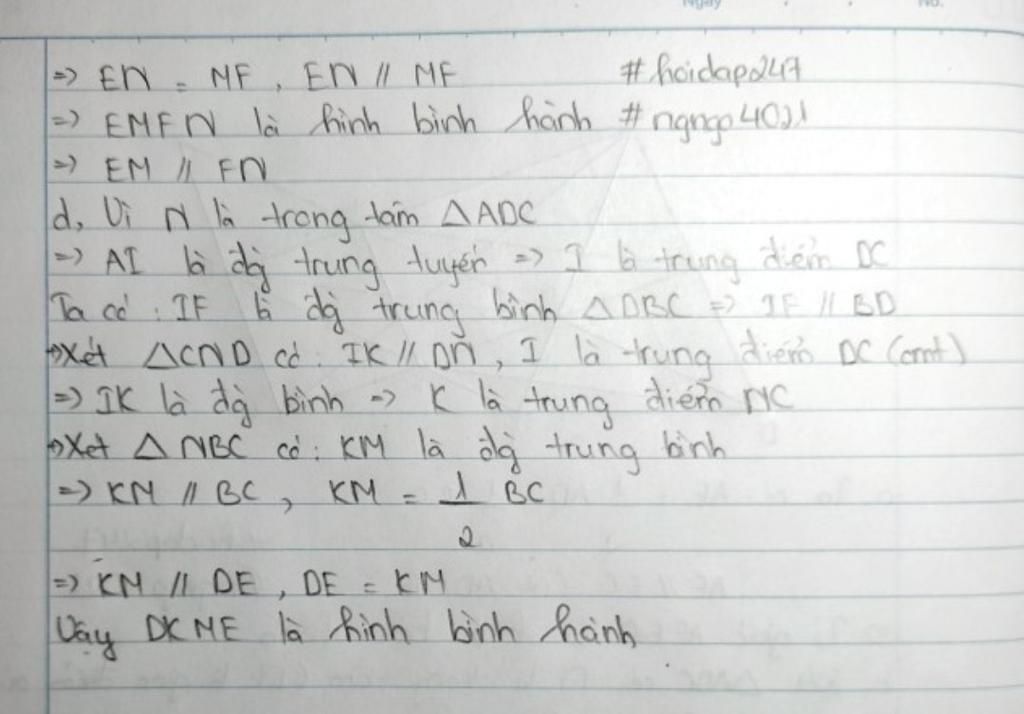 Ngày No.
=> EN = MF, EN // MF #hoidap247
=> EMFN là hình bình hành #ngngo4021
=> EM // FN
d, Vì N là trong tâm △ADC
=> AI là đg trung tuyến => I là trung điểm DC
Ta có : IF là đg trung bình △DBC => IF // BD
→Xét △CND có: IK // DN, I là trung điểm DC (cmt)
=> IK là đg bình => K là trung điểm NC
→Xét △NBC có: KM là đg trung bình
=> KM // BC, KM = 1 BC
2
=> KM // DE, DE = KM
Vậy DKME là hình bình hành